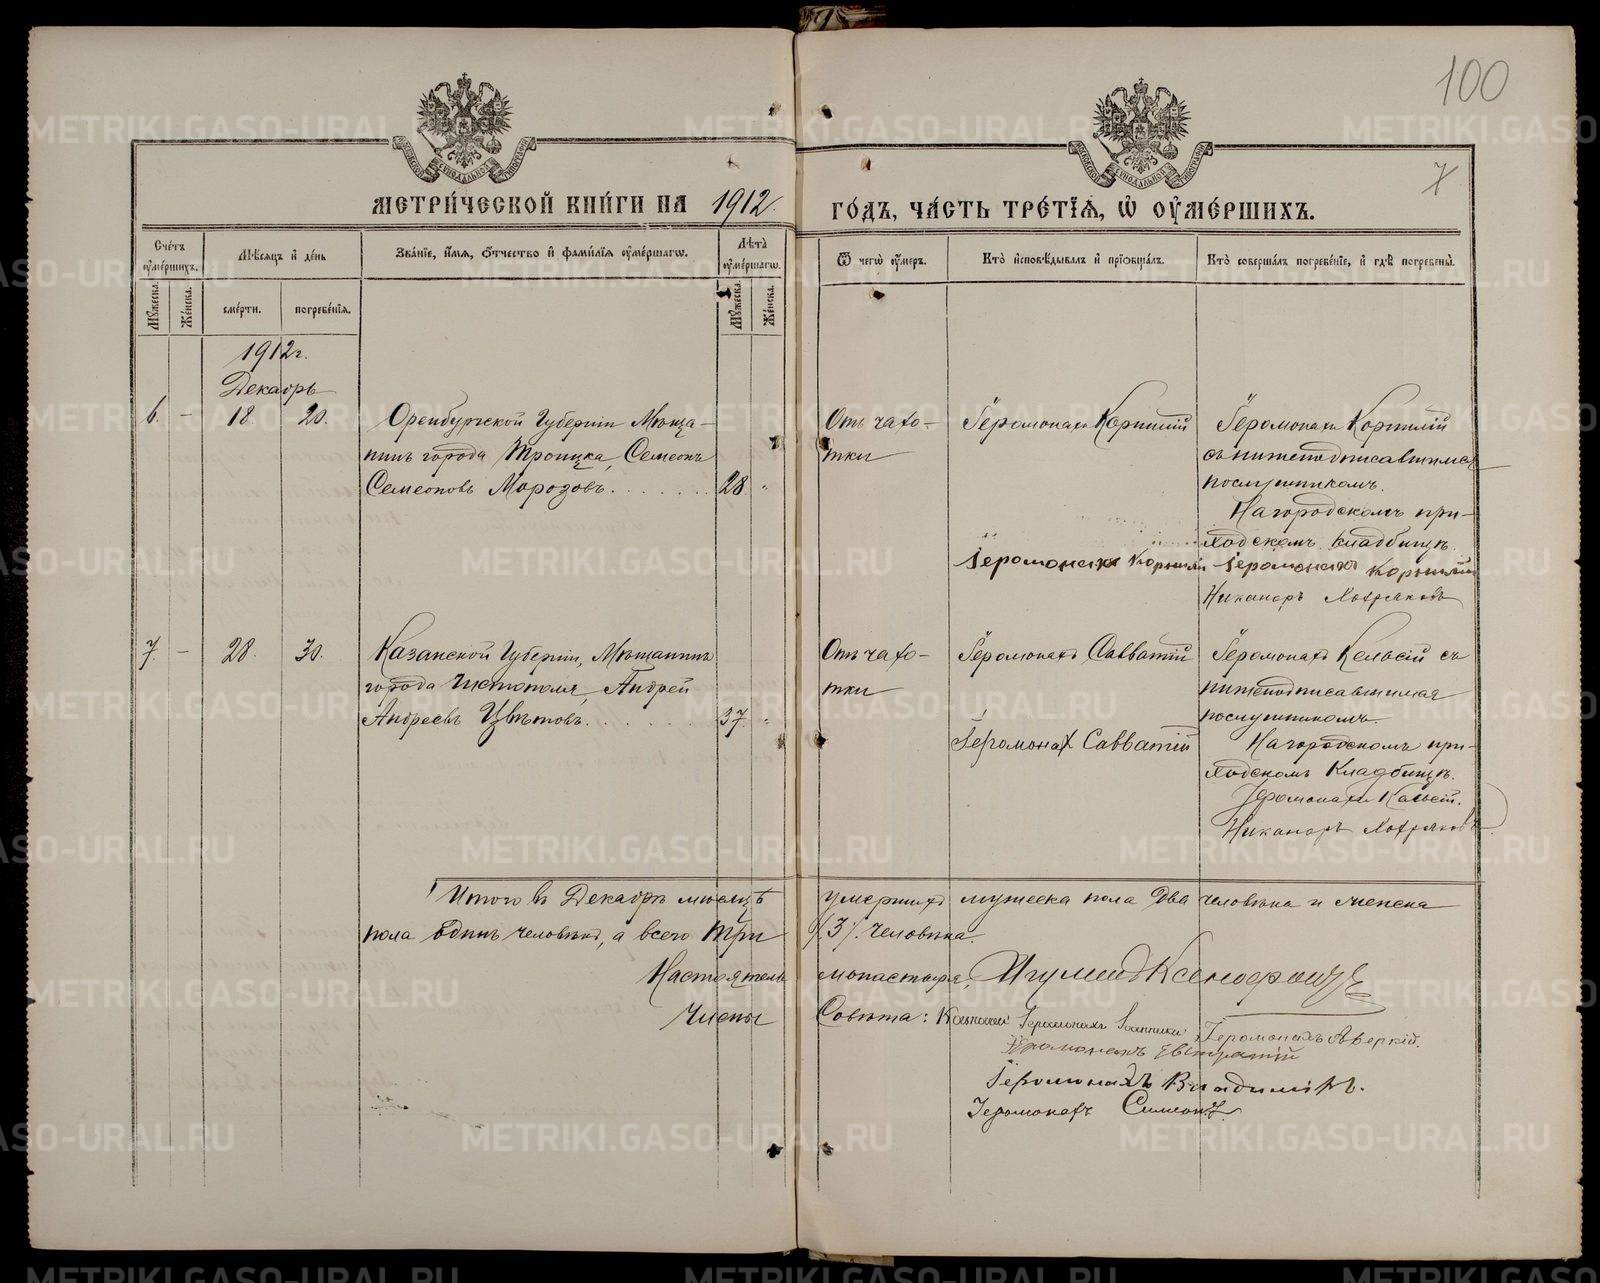 100
7
МЕТРИ́ЧЕСКОЙ КНИ́ГИ НА 1912 ГО́ДЪ, ЧА́СТЬ ТРЕ́ТІѦ, Ѡ ОУ҆МЕ́РШИХЪ.
Сче́тъ оу҆ме́ршихъ.
Мѣ́сяцъ и҆ де́нь
Зва́ніе, и҆́мѧ, ѻ҆́тчество и҆ фами́лїѧ оу҆ме́ршагѡ.
Лѣта̀ оу҆ме́ршагѡ.
Ѿ чегѡ̀ оу҆́меръ.
Кто̀ и҆сповѣ́дывалъ и҆ прїѡбща́лъ.
Кто̀ соверша́лъ погребе́нїе, и҆ гдѣ̀ погребены̀.
Му́жеска.
Же́нска.
сме́рти.
погребе́нїѧ.
Му́жеска.
Же́нска.
1912 г.
Декабрь
6. - 18. 20. Оренбургской Губерніи Мѣща-
нинъ города Троицка, Семеонъ
Семеоновъ Морозовъ 28 "
Отъ чахо-
тки
Іеромонахъ Корнилій
Іеромонахъ Корнилій
съ нижеподписавшимся
послушникомъ.
На городскомъ при-
ходскомъ кладбищѣ.
Іеромонахъ Корнилій
Іеромонахъ Корнилій
Никаноръ Хохряковъ
7. - 28. 30. Казанской Губерніи, Мѣщанинъ
города Чистополя, Андрей
Андреевъ Цвѣтовъ 37. "
Отъ чахо-
тки
Іеромонахъ Савватій
Іеромонах Савватій
Іеромонахъ Кельсій съ
нижеподписавшимся
послушникомъ.
На городскомъ при-
ходскомъ Кладбищѣ.
Іеромонахъ Кельсій.
Никаноръ Хохряковъ
Итого въ Декабрѣ мѣсяцѣ умершихъ мужеска пола два человѣка и женска
пола одинъ человѣкъ, а всего три /3/. человѣка.
Настоятель монастыря, Игуменъ Ксенофонтъ
Члены Совѣта: Казначей Іеромонахъ Іоанникій
Іеромонахъ Аверкій.
Іеромонахъ Евстратій
Іеромонахъ Владиміръ.
Іеромонахъ Симеонъ
METRIKI.GASO-URAL.RU